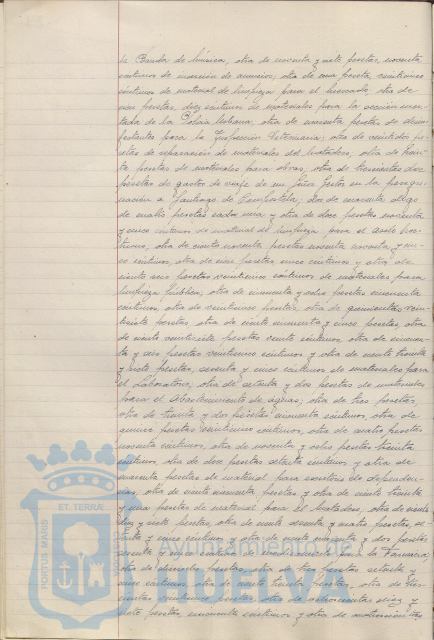 la Banda de música, otra de noventa y siete pesetas, noventa
céntimos de inserción de anuncios; otra de una peseta, veinticinco
céntimos de material de limpieza para el Mercado, otra de
seis pesetas, diez céntimos de materiales para la sección mon-
tada de la Policía Urbana, otra de cuarenta pesetas de desin-
fectantes para la Inspección Veterinaria; otra de veintidós pe-
setas de reparación de materiales del Matadero, otra de trein-
ta pesetas de materiales para obras, otra de trescientas dos
pesetas de gastos de viaje de un guía Gestor en la peregri-
nación a Santiago de Compostela; dos de cuarenta
de cuatro pesetas cada una y otra de doce pesetas noventa
y cinco céntimos de material de limpieza para el Asilo Noc-
turno, otra de ciento noventa pesetas noventa y cin-
co céntimos, otra de once pesetas cinco céntimos y otra de
ciento seis pesetas veinticinco céntimos de materiales para
limpieza pública; otra de cincuenta y ocho pesetas cincuenta
céntimos, otra de veinticinco pesetas, otra de quinientas vein-
tisiete pesetas, otra de ciento cincuenta y cinco pesetas, otra
de ciento veintisiete pesetas veinte céntimos, otra de cincuen-
ta y seis pesetas veinticinco céntimos y otra de ciento treinta
y siete pesetas, sesenta y cinco céntimos de materiales para
el Laboratorio; otra de setenta y dos pesetas de materiales
para el Abastecimiento de aguas; otra de tres pesetas,
otra de treinta y dos pesetas cincuenta céntimos, otra de
quince pesetas veinticinco céntimos, otra de cuatro pesetas
noventa céntimos, otra de noventa y ocho pesetas treinta
céntimos, otra de doce pesetas setenta céntimos y otra de
cuarenta pesetas de material para escritorio de dependen-
cias, otra de ciento cincuenta pesetas y otra de ciento treinta
y una pesetas de material para el Matadero, otra de ciento
diez y siete pesetas, otra de ciento sesenta y cuatro pesetas, se-
tenta y cinco céntimos y otra de ciento cuarenta y dos pesetas
setenta y cinco céntimos de medicamentos de la Farmacia;
otra de doscientas pesetas, otra de tres pesetas setenta y
cinco céntimos, otra de ciento treinta pesetas, otra de tres-
cientas veinticinco pesetas, otra de ochocientas diez y
siete pesetas cincuenta céntimos y otra de
PORTUS MARIS
ET TERRAE
Ayuntamiento de
HUELVA